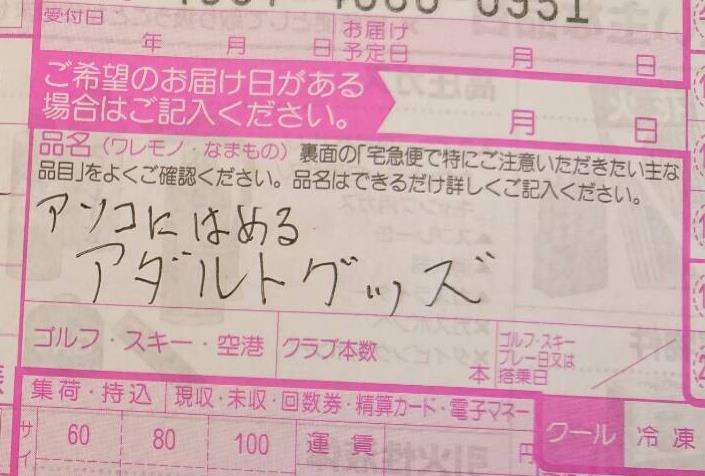 4667-4660-0951
受付日 年 月 日 お届け予定日 月 日
ご希望のお届け日がある
場合はご記入ください。
月 日
品名（ワレモノ・なまもの）裏面の「宅急便で特にご注意いただきたい主な
品目」をよくご確認ください。品名はできるだけ詳しくご記入ください。
アソコにはめる
アダルトグッズ
ゴルフ・スキー・空港 クラブ本数 本 ゴルフ・スキー
プレー日又は
搭乗日
集荷・持込 現収・未収・回数券・精算カード・電子マネー
サイ 60 80 100 運賃 円 クール 冷凍